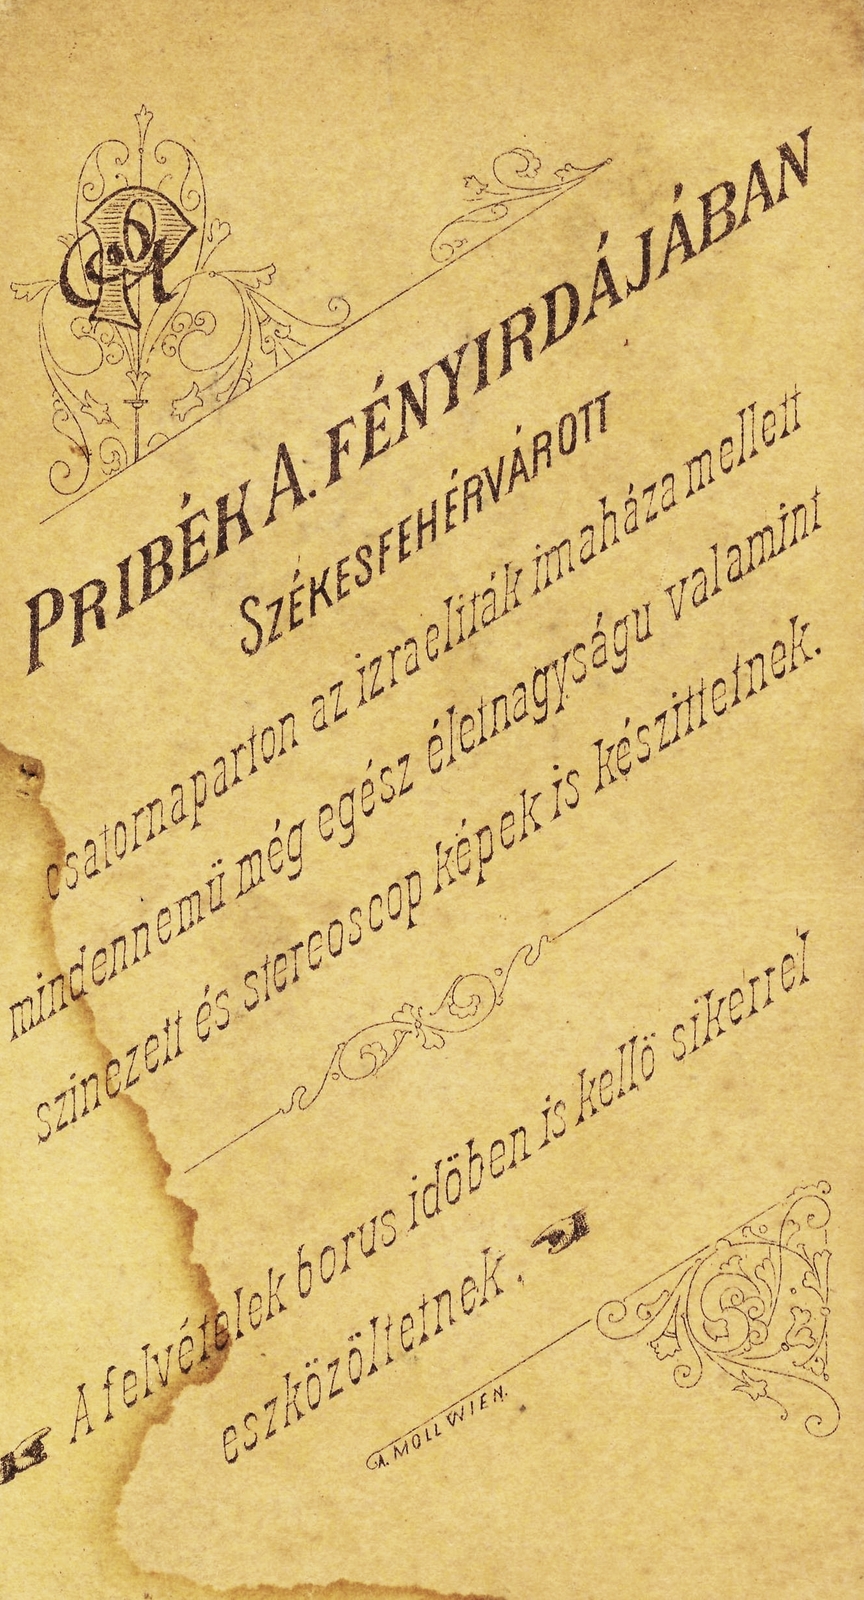 PRIBÉK A. FÉNYIRDÁJÁBAN
SZÉKESFEHÉRVÁROTT
csatornaparton az izraeliták imaháza mellett
mindennemü még egész életnagyságu valamint
szinezett és stereoscop képek is készittetnek.
A felvételek borus idöben is kellö sikerrel
eszközöltetnek.
A. MOLL WIEN.